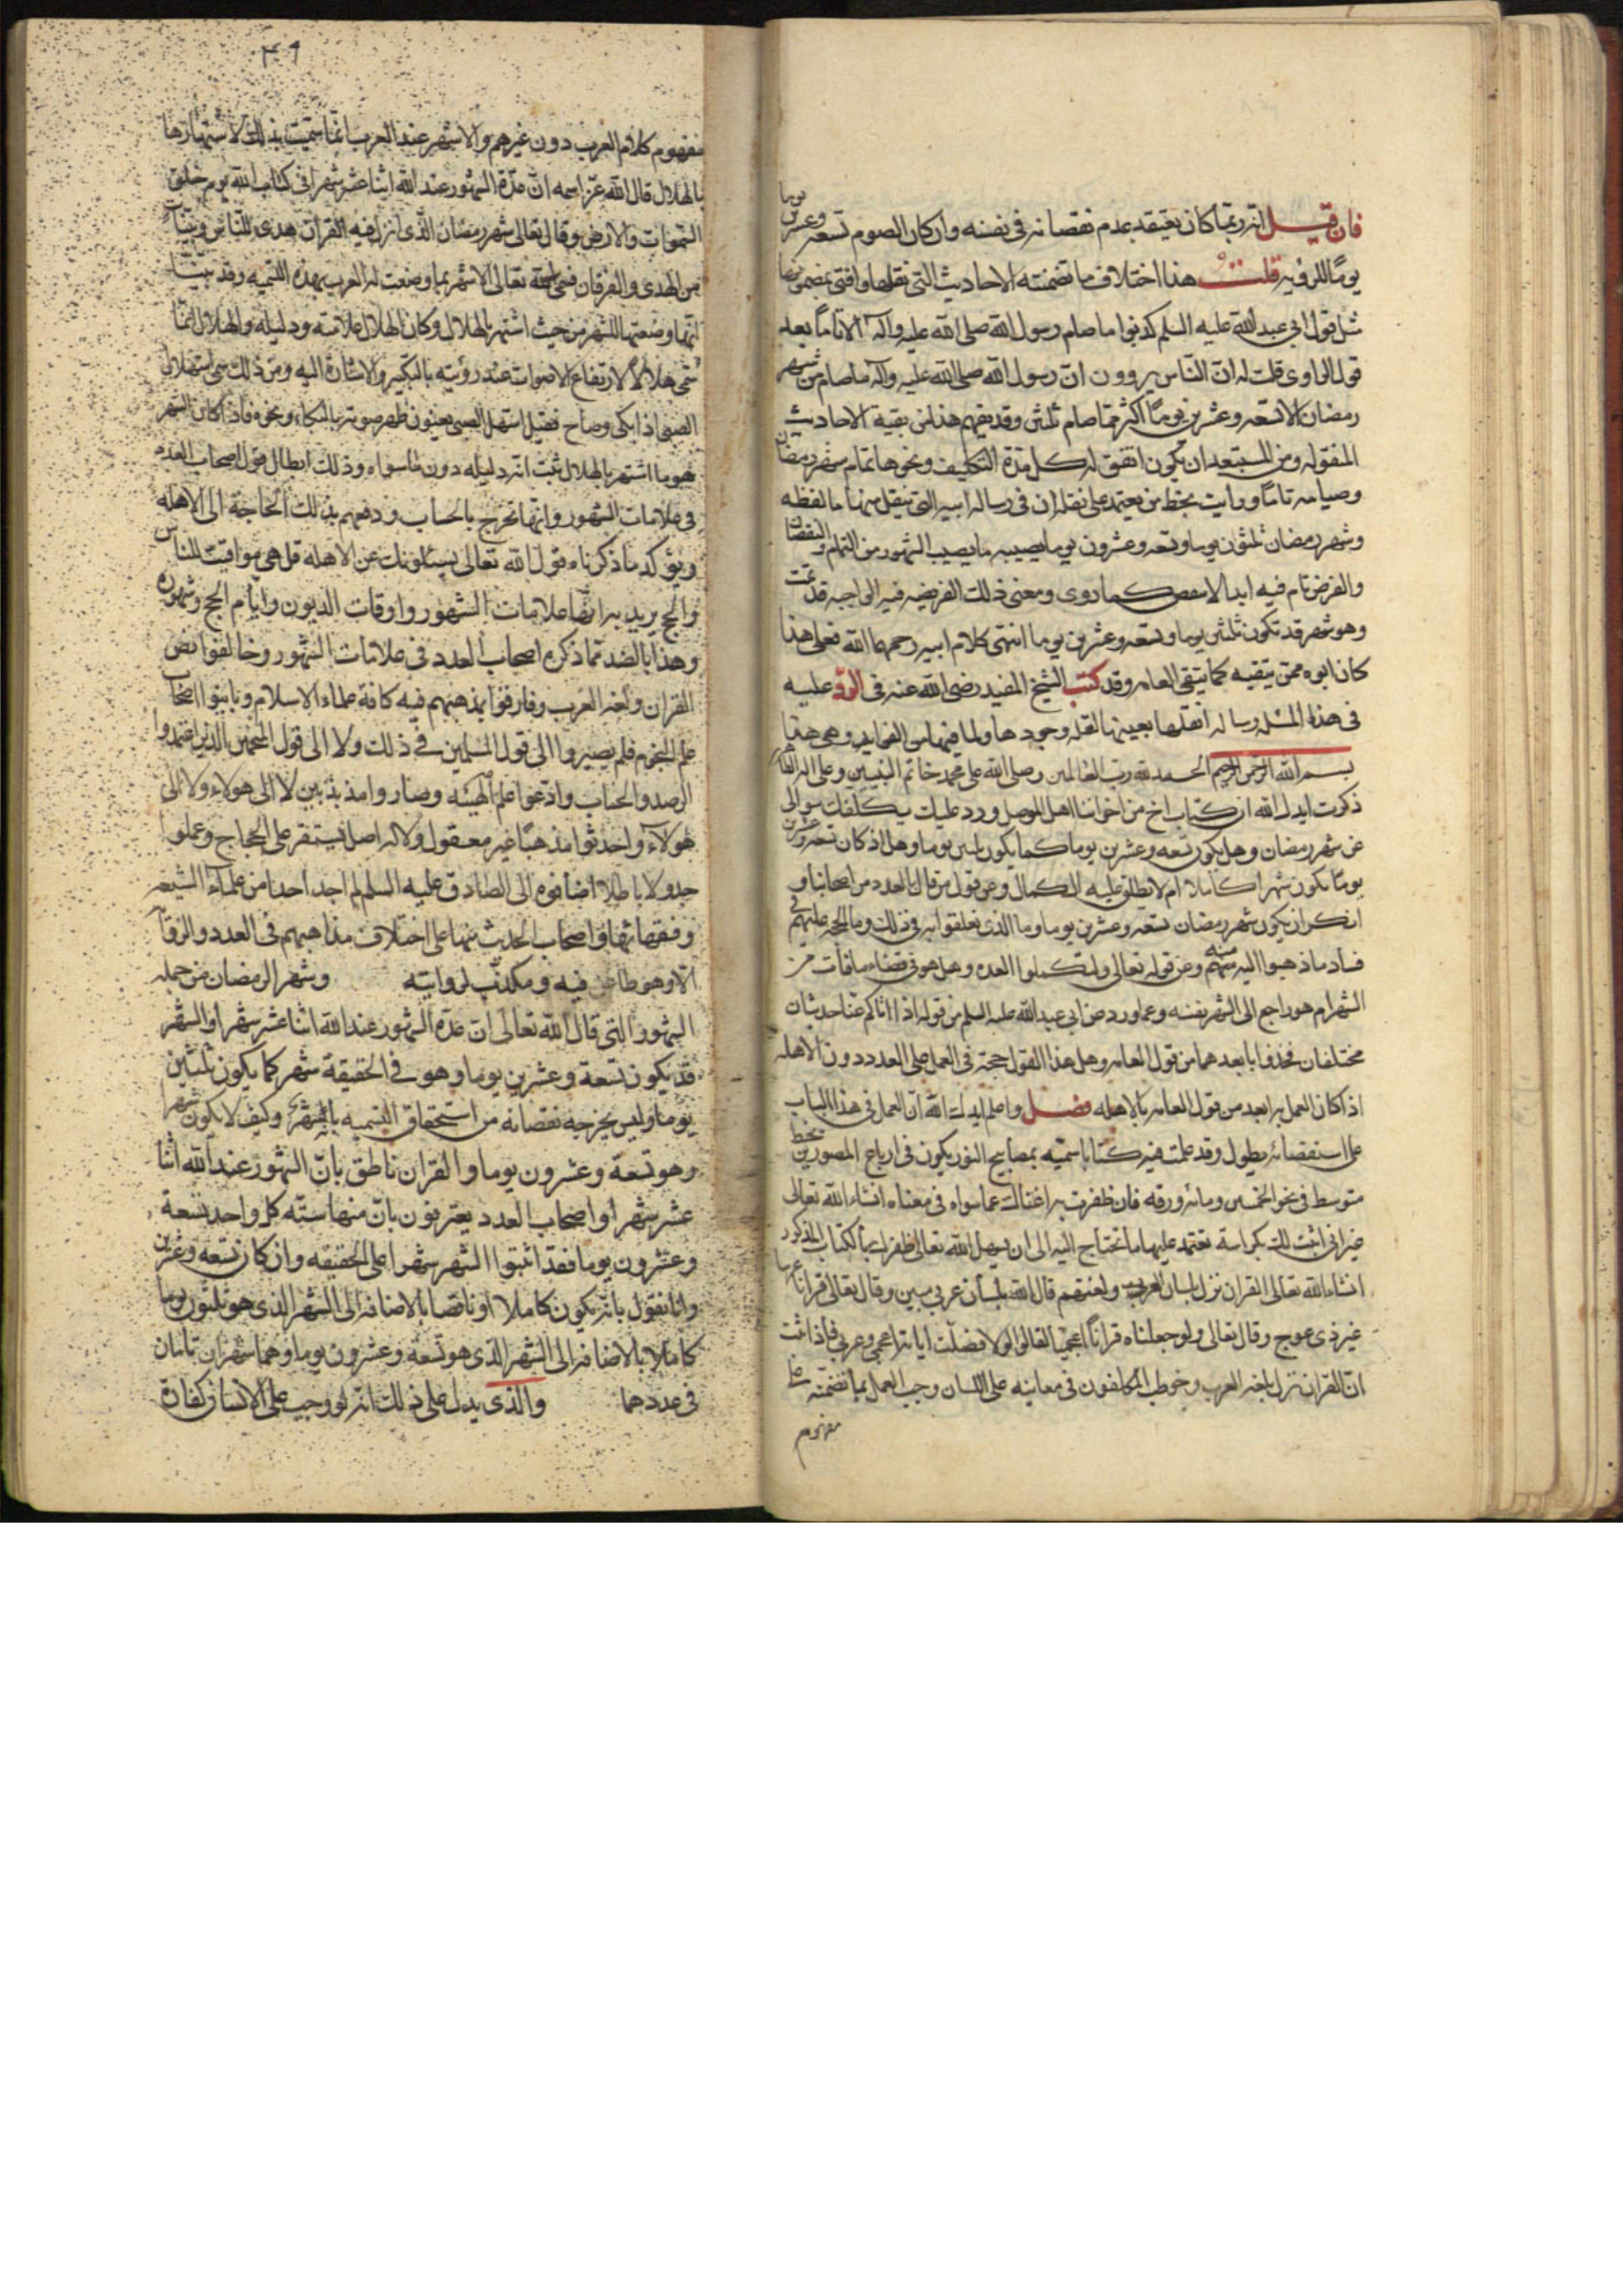 فان قيل انه ربما كان يعتقد عدم نقصانه في نفسه وان كان الصوم تسعه وعشرين يوما
يومًا للرؤيه قلت هذا اختلاف ما تضمنته الاحاديث التي نقلها وافتى بمضمونها
مثل قول ابي عبد الله عليه السلم كذبوا ما صام رسول الله صلى الله عليه وآله الا تامًا بعد
قول الراوي قلت له ان الناس يروون ان رسول الله صلى الله عليه وآله ما صام من شهر
رمضان الا تسعه وعشرين يومًا اكثر مما صام ثلثين وقد يفهم هذا من بقية الاحاديث
المنقوله ومن المستبعد ان يكون اتفق له كل مدة التكليف ونحوها تمام شهر رمضان
وصيامه تامًا ورايت بخط من يعتمد على نقله ان في رساله ابيه التي ينقل منها ما لفظه
وشهر رمضان ثلثون يوما وتسعه وعشرون يوما يصيبه ما يصيب الشهور من التمام والنقصان
والفرض تام فيه ابدا لا ينقص كما روى ومعنى ذلك الفريضه فيه الواجبه قد تمت
وهو شهر قد تكون ثلثين يوما وتسعه وعشرين يوما انتهى كلام ابيه رحمهما الله فعلى هذا
كان ابوه ممن يتقيه كما يتقى العامه وقد كتب الشيخ المفيد رضى الله عنه في الرد عليه
في هذه المسئله رساله انقلها بعينها لقله وجودها ولما فيها من الفوايد وهي هذا
بسم الله الرحمن الرحيم الحمد لله رب العالمين وصلى الله على محمد خاتم النبيين وعلى اله الطاهرين
ذكرت ايدك الله ان كتاب اخ من اخواننا اهل الموصل ورد عليك يكلفك سوالي
عن شهر رمضان وهل يكون تسعه وعشرين يوما كما يكون ثلثين يوما وهل اذ كان تسعه وعشرين
يومًا يكون شهرا كاملا ام لا يطلق عليه الكمال وعن قول من قال بالعدد من اصحابنا و
انكر ان يكون شهر رمضان تسعه وعشرين يوما وما الذي تعلقوا به في ذلك وما الحجه عليهم في
فساد ما ذهبوا اليه منه وعن قوله تعالى ولتكملوا العده وهل هو في قضاء ما فات من
الشهر ام هو راجع الى الشهر نفسه وعما ورد عن ابي عبد الله عليه السلم من قوله اذا اتاكم عنا حديثان
مختلفان فخذوا بابعدهما من قول العامه وهل هذا القول حجة في العمل على العدد دون الاهله
اذا كان العمل به ابعد من قول العامه بالاهله فصل واعلم ايدك الله ان العمل في هذا الباب
على استقصائه يطول وقد عملت فيه كتابا سميته بمصابيح النور يكون في ارباع المنصوري بخط
متوسط في نحو الخمسين ومائه ورقه فان ظفرت به اغناك عما سواه في معناه انشاء الله تعالى
غير اني اثبت لك بكراسة تعتمد عليها ما تحتاج اليه الى ان يسهل الله تعالى ظفرك بالكتاب المذكور
انشاء الله تعالى القران نزل بلسان العرب ولغتهم قال الله بلسان عربي مبين وقال تعالى قرانا عربيا
غير ذي عوج وقال تعالى ولو جعلناه قرانًا اعجميا لقالوا لولا فصلت اياته اعجمي وعربي فاذا ثبت
ان القران نزل بلغه العرب وخوطب المكلفون في معانيه على اللسان وجب العمل بما تضمنته على
مفهوم
٤٦
مفهوم كلام العرب دون غيرهم والاشهر عند العرب انما سميت بذلك لاشتهارها
بالهلال قال الله عز اسمه ان عدة الشهور عند الله اثنا عشر شهرا في كتاب الله يوم خلق
السموات والارض وقال تعالى شهر رمضان الذي انزل فيه القرآن هدى للناس وبينات
من الهدى والفرقان فسمى الله تعالى الاشهر بما وضعت له العرب بهذه التسميه وقد بينا
انها وضعتها للشهر من حيث اشتهر بالهلال وكان الهلال علامته ودليله والهلال انما
سمى هلالا لارتفاع الاصوات عند رؤيته بالتكبير والاشارة اليه ومن ذلك سمى استهلال
الصبى اذا بكى وصاح فقيل استهل الصبى يعنون ظهر صوته بالبكاء ونحوه فاذا كان الشهر
هو ما اشتهر بالهلال ثبت انه دليله دون ما سواه وذلك ابطال قول اصحاب العدد
في علامات الشهور وانها تخرج بالحساب ودفعهم بذلك الحاجة الى الاهله
ويؤكد ما ذكرناه قول الله تعالى يسئلونك عن الاهله قل هي مواقيت للناس
والحج يريد به انها علامات الشهور واوقات الديون وايام الحج وشهوره
وهذا بالضد مما ذكره اصحاب العدد في علامات الشهور وخالفوا نص
القران ولغه العرب وفارقوا بمذهبهم فيه كافة علماء الاسلام وباينوا اصحاب
علم النجوم فلم يصيروا الى قول المسلمين في ذلك ولا الى قول المنجمين الذين اعتمدوا
الرصد والحساب وادعوا علم الهيئه وصاروا مذبذبين لا الى هولاء ولا الى
هولآء واحدثوا مذهبًا غير معقول ولا له اصل يستقر على الحجاج وعملوا
جدولا باطلا اضافوه الى الصادق عليه السلم لم اجد احدا من علمآء الشيعه
وفقهائها واصحاب الحديث منها على اختلاف مذاهبهم في العدد والرؤيا
الا وهو طاعن فيه ومكذب لروايته وشهر رمضان من جمله
الشهور التي قال الله تعالى ان عدة الشهور عند الله اثنا عشر شهرا والشهر
قد يكون تسعة وعشرين يوما وهو في الحقيقة شهر كما يكون ثلثين
يوما وليس يخرجه نقصانه من استحقاق التسميه بالشهر وكيف لا يكون شهرا
وهو تسعة وعشرون يوما والقران ناطق بان الشهور عند الله اثنا
عشر شهرا واصحاب العدد يعترفون بان منها سته كل واحد تسعة
وعشرون يوما فقد اثبتوا الشهر شهرا على الحقيقه وان كان تسعه وعشرين
وانا نقول بانه يكون كاملا او ناقصا بالاضافه الى الشهر الذي هو ثلثون يوما
كاملا بالاضافه الى الشهر الذي هو تسعة وعشرون يوما وهما شهران تامان
في عددهما والذي يدل على ذلك انه لو وجب على الانسان كفارة